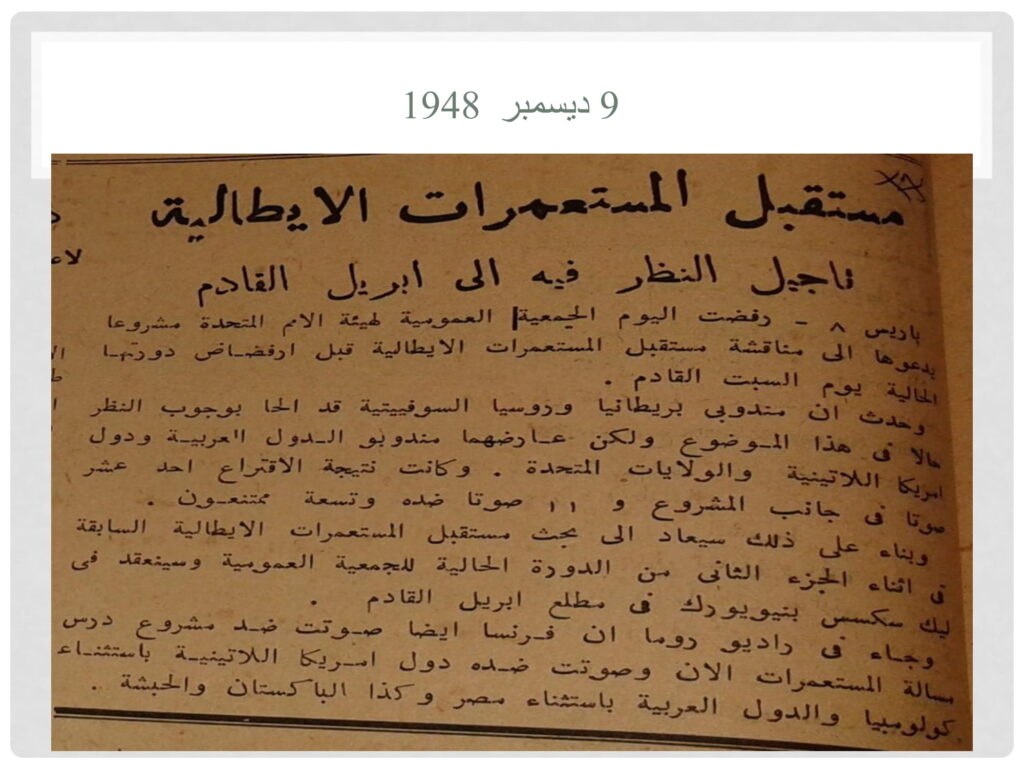 9 ديسمبر 1948
مستقبل المستعمرات الايطالية
تاجيل النظر فيه الى أبريل القادم
باريس ٨ - رفضت اليوم الجمعية العمومية لهيئة الامم المتحدة مشروعا
يدعوها الى مناقشة مستقبل المستعمرات الايطالية قبل ارفضاض دورتها
الحالية يوم السبت القادم .
وحدث ان مندوبى بريطانيا وروسيا السوفييتية قد الحا بوجوب النظر
حالا فى هذا الموضوع ولكن عارضهما مندوبو الدول العربية ودول
امريكا اللاتينية والولايات المتحدة . وكانت نتيجة الاقتراع احد عشر
صوتا فى جانب المشروع و ١١ صوتا ضده وتسعة ممتنعون .
وبناء على ذلك سيعاد الى بحث مستقبل المستعمرات الايطالية السابقة
فى اثناء الجزء الثانى من الدورة الحالية للجمعية العمومية وسينعقد فى
ليك سكسس بنيويورك فى مطلع ابريل القادم .
وجاء فى راديو روما ان فرنسا ايضا صوتت ضد مشروع درس
مسالة المستعمرات الان وصوتت ضده دول امريكا اللاتينية باستثناء
كولومبيا والدول العربية باستثناء مصر وكذا الباكستان والحبشة .